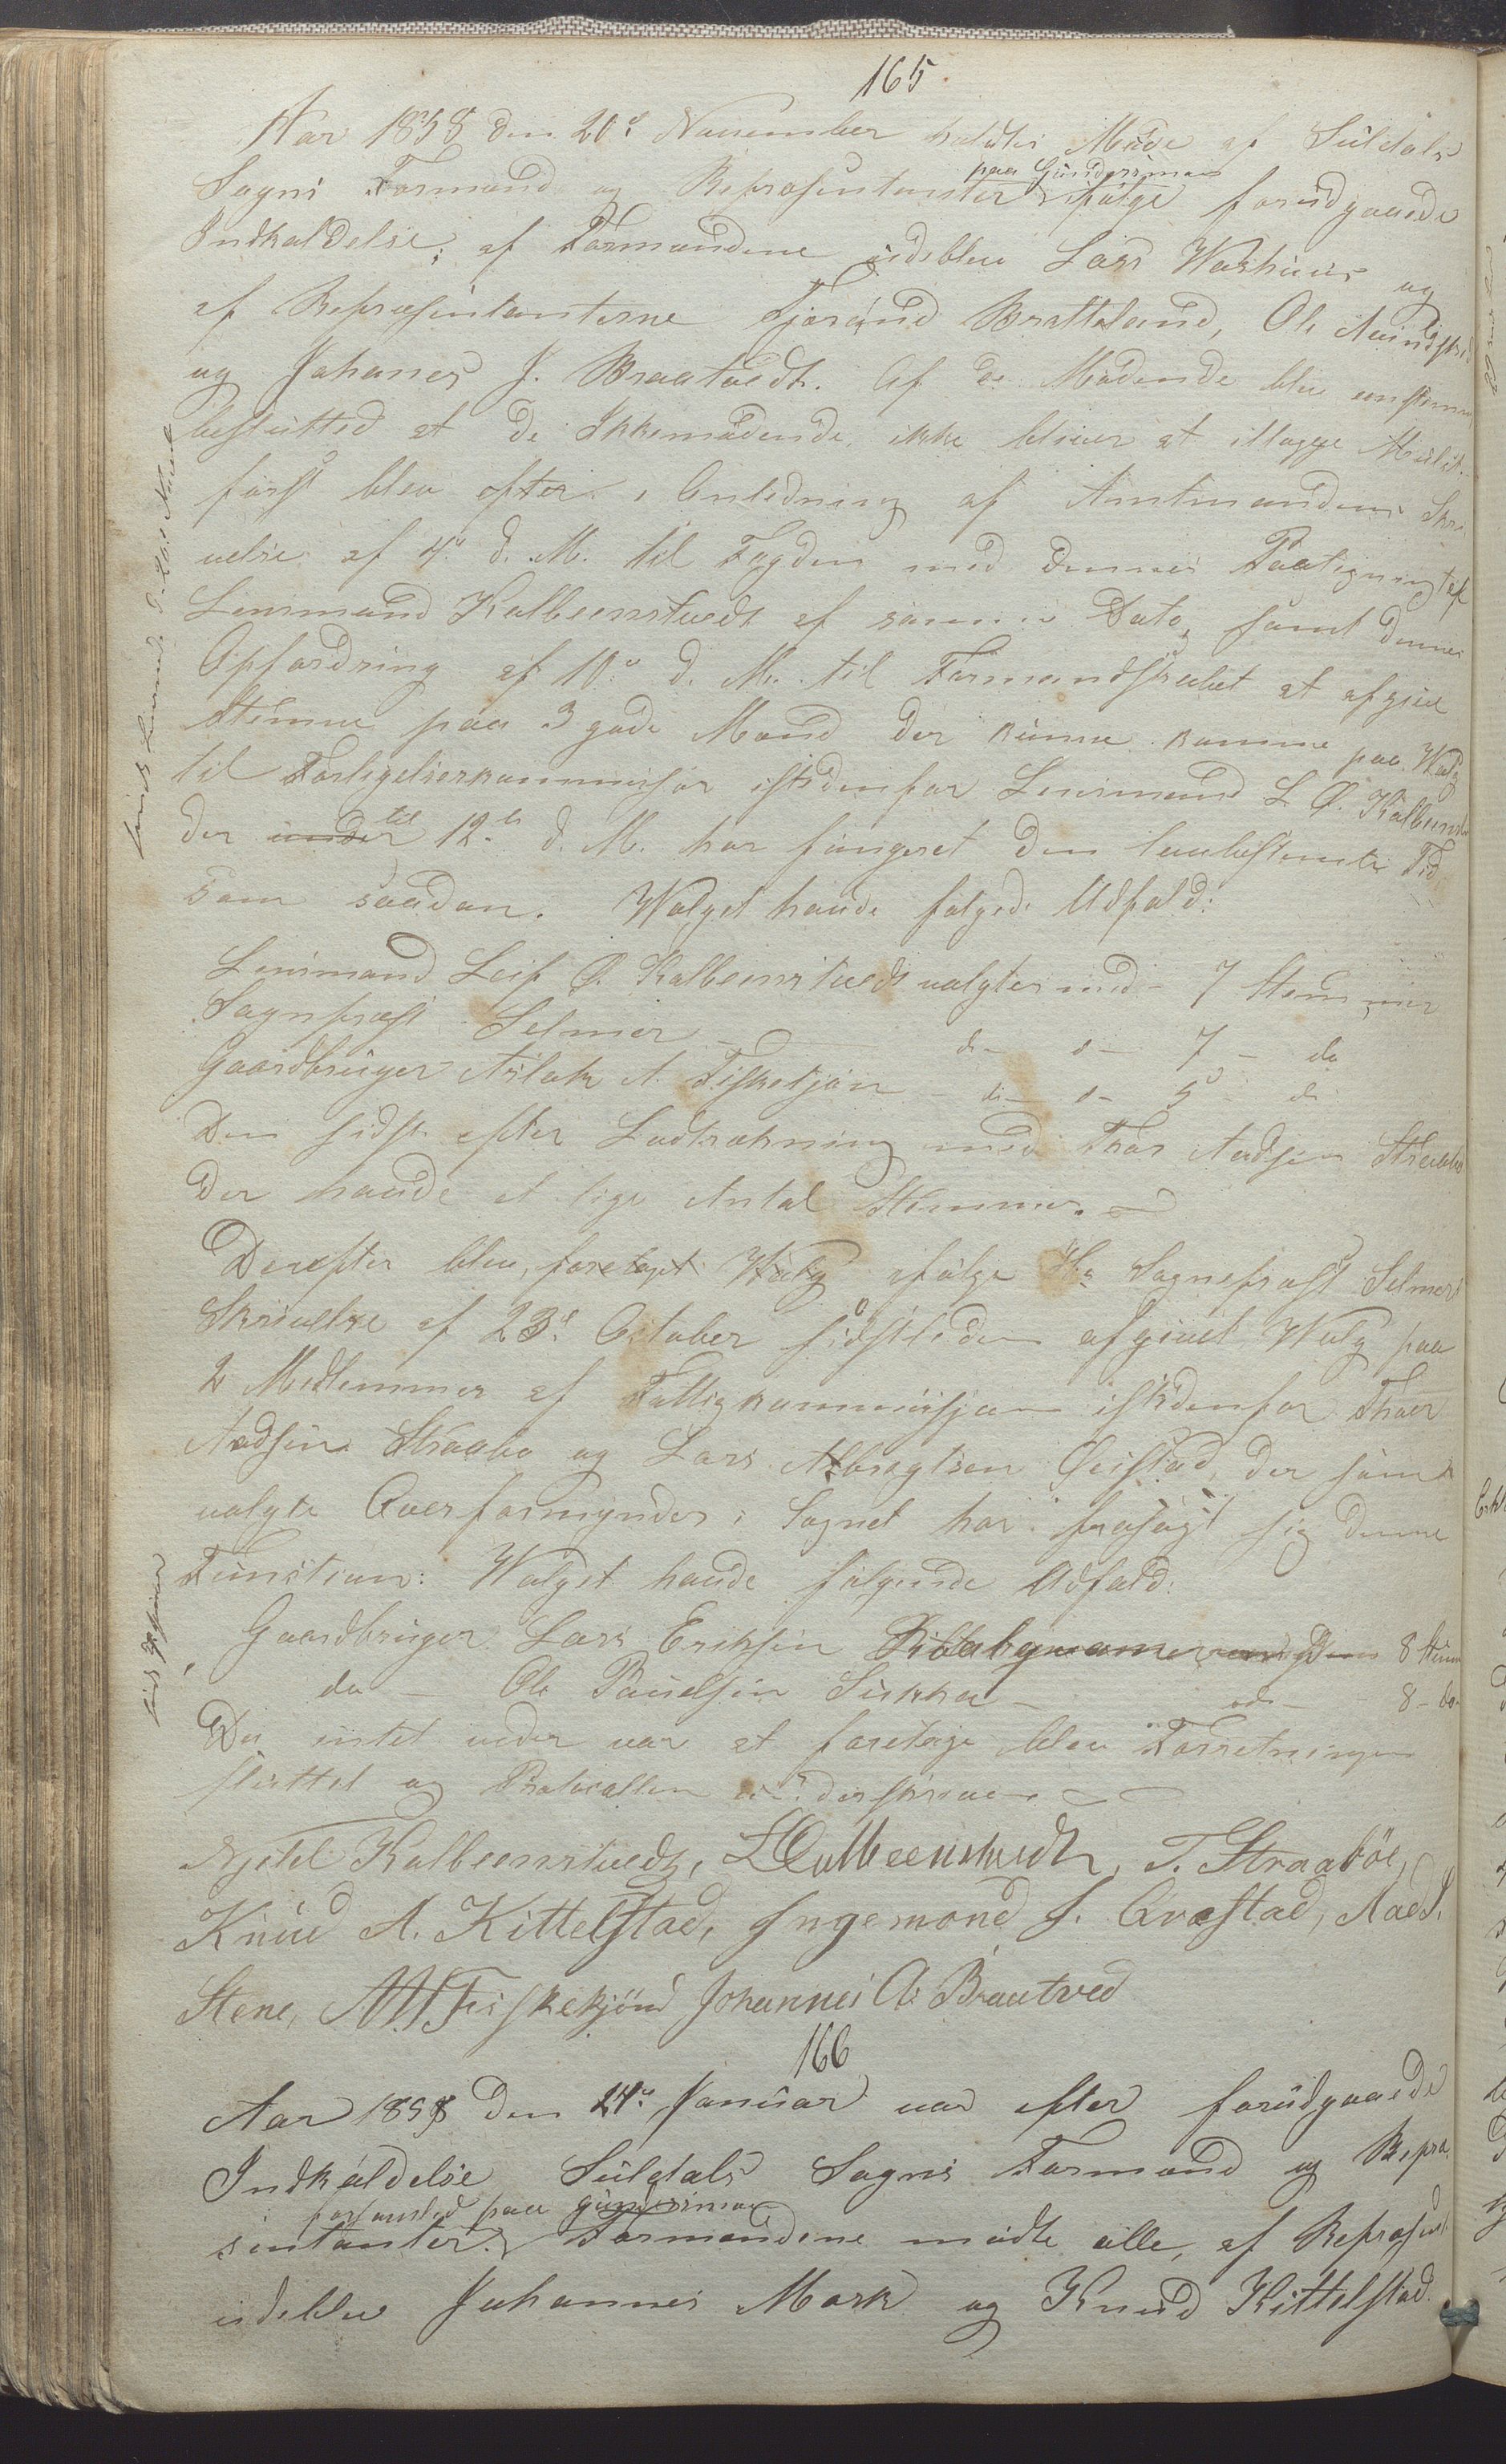 165
Aar 1858 den 20de November holdtes Møde af Suldals
paa Gundersmoe
Sogns Formænd og Repræsentanter ifølge forudgaaede
Indkaldelse; af Formændene udeblev Lars Washuus og
af Repræsentanterne Fjerand Bratteland, Ole
og Johanes J. Braatvedt. Af de Mødende blev eenstemmig
beslutted at de Ikkemødende ikke bliver at ilægge Mulct.
først blev efter Anledning af Amtmandens Skri-
velse af 4de d. M. til Fogden med dennes Paategning til
Lensmand Kolbeenstvedt af samme Dato, samt dennes
Opfordring af 10de d. M. til Formandskabet at afgive
Stemme paa 3 gode Mænd der kunne komme paa Walg
til Forligelseskommisær istedenfor Lensmand L. O. Kolbeenstv
der under til 12te d. M. har fungeret den lovbestemte Tid
som saadan. Walget havde følgede Udfald:
Lensmand Leif O. Kolbeenstvedt valgtes med 7 Stemmer
Sognepræst Selmer do - 7 - do
Gaardbruger Aslak A. Fiskekjøn - do - 5 - do
Den sidste efter Lodtrækning med Thor Aadsen Straabø
der havde et lige Antal Stemmer.
Derefter blev foretaget Walg ifølge Hr Sognepræst Selmers
Skrivelse af 23de October sidstleden afgivet Walg paa
2 Medlemmer af Fattigkommissjon istedenfor Thor
Aadsen Straabø og Lars Albregtsen Østad, der som
valgte Overformynder i Sognet har frasagt sig denne
Function: Walget havde følgende Udfald:
Gaardbruger Lars Eriksen 8 Stem
do - Ole Poulsen Sukka - do - 8 - do
Da intet videre var at foretage blev Forretningen
sluttet og Protocollen underskreven
Kjetel Kolbeenstvedt, LOKolbeenstvedt, T. Straabøe,
Knud A. Kittelstad, Ingemond J. Qvæstad, Aad J.
Stene, AAFiskekjönd Johannes A. Braatved
166
Aar 1859 den 24de Januar var efter forudgaaede
Indkaldelse Suldals Sogns Formænd og Repræ-
forsamled paa Gundersmoe
sentanter. Formændene mødte alle, af Repræsent
udeblev Johannes Mork og Knud Kittelstad.